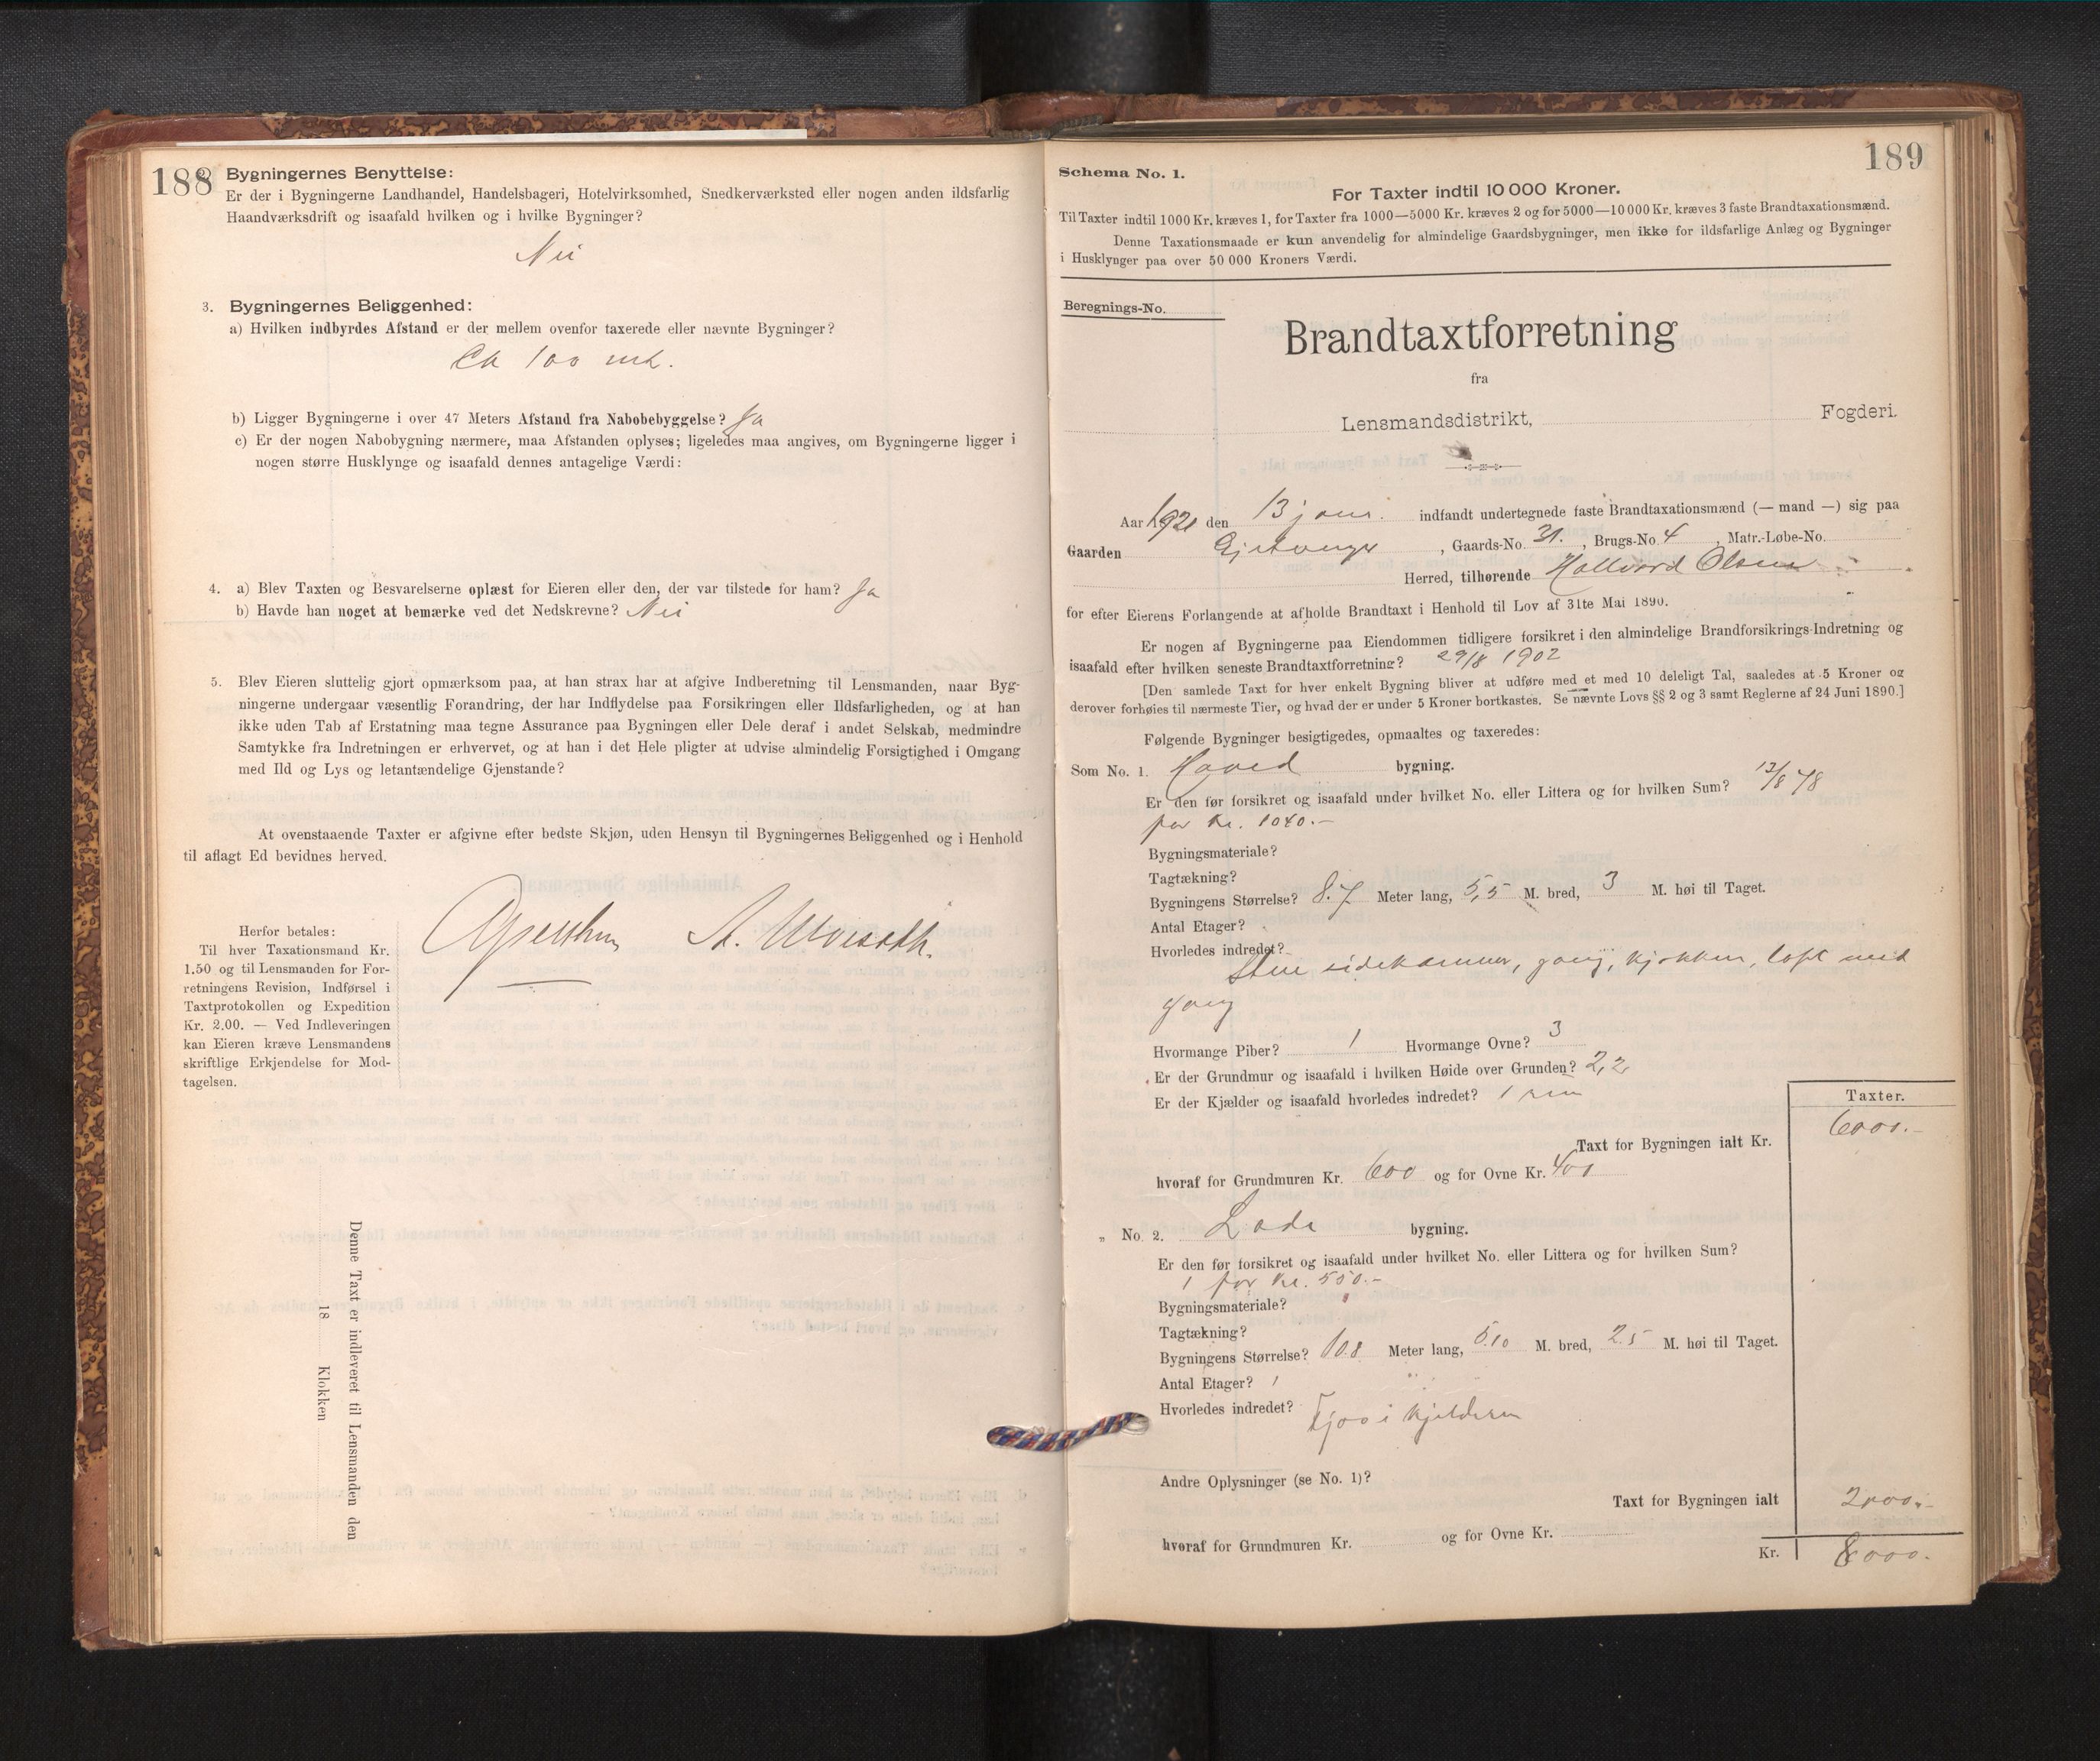 188
Bygningernes Benyttelse:
Er der i Bygningerne Landhandel, Handelsbageri, Hotelvirksomhed, Snedkerværksted eller nogen anden ildsfarlig
Haandværksdrift og isaafald hvilken og i hvilke Bygninger?
Nei
3. Bygningernes Beliggenhed:
a) Hvilken indbyrdes Afstand er der mellem ovenfor taxerede eller nævnte Bygninger?
Ca 100 mt.
b) Ligger Bygningerne i over 47 Meters Afstand fra Nabobebyggelse? Ja
c) Er der nogen Nabobygning nærmere, maa Afstanden oplyses; ligeledes maa angives, om Bygningerne ligger i
nogen større Husklynge og isaafald dennes antagelige Værdi:
4. a) Blev Taxten og Besvarelserne oplæst for Eieren eller den, der var tilstede for ham? Ja
b) Havde han noget at bemærke ved det Nedskrevne? Nei
5. Blev Eieren sluttelig gjort opmærksom paa, at han strax har at afgive Indberetning til Lensmanden, naar Byg-
ningerne undergaar væsentlig Forandring, der har Indflydelse paa Forsikringen eller Ildsfarligheden, og at han
ikke uden Tab af Erstatning maa tegne Assurance paa Bygningen eller Dele deraf i andet Selskab, medmindre
Samtykke fra Indretningen er erhvervet, og at han i det Hele pligter at udvise almindelig Forsigtighed i Omgang
med Ild og Lys og letantændelige Gjenstande?
At ovenstaaende Taxter er afgivne efter bedste Skjøn, uden Hensyn til Bygningernes Beliggenhed og i Henhold
til aflagt Ed bevidnes herved.
Herfor betales:
Til hver Taxationsmand Kr.
1.50 og til Lensmanden for For-
retningens Revision, Indførsel i
Taxtprotokollen og Expedition
Kr. 2.00. — Ved Indleveringen
kan Eieren kræve Lensmandens
skriftlige Erkjendelse for Mod-
tagelsen.
Denne Taxt er indleveret til Lensmanden den
18 Klokken
189
Schema No. 1.
For Taxter indtil 10 000 Kroner.
Til Taxter indtil 1000 Kr. kræves 1, for Taxter fra 1000—5000 Kr. kræves 2 og for 5000—10 000 Kr. kræves 3 faste Brandtaxationsmænd.
Denne Taxationsmaade er kun anvendelig for almindelige Gaardsbygninger, men ikke for ildsfarlige Anlæg og Bygninger
i Husklynger paa over 50 000 Kroners Værdi.
Beregnings-No.
Brandtaxtforretning
fra
Lensmandsdistrikt, Fogderi.
Aar 1921 den 13 jan. indfandt undertegnede faste Brandtaxationsmænd (— mand —) sig paa
Gaarden , Gaards-No. 31. , Brugs-No. 4 , Matr.-Løbe-No.
Herred, tilhørende Hallvard Olsen
for efter Eierens Forlangende at afholde Brandtaxt i Henhold til Lov af 31te Mai 1890.
Er nogen af Bygningerne paa Eiendommen tidligere forsikret i den almindelige Brandforsikrings-Indretning og
isaafald efter hvilken seneste Brandtaxtforretning? 29/8 1902
[Den samlede Taxt for hver enkelt Bygning bliver at udføre med et med 10 deleligt Tal, saaledes at 5 Kroner og
derover forhøies til nærmeste Tier, og hvad der er under 5 Kroner bortkastes. Se nævnte Lovs §§ 2 og 3 samt Reglerne af 24 Juni 1890.]
Følgende Bygninger besigtigedes, opmaaltes og taxeredes:
Som No. 1. Hoved bygning.
Er den før forsikret og isaafald under hvilket No. eller Littera og for hvilken Sum? 12/8 78
for kr. 1040.-
Bygningsmateriale?
Tagtækning?
Bygningens Størrelse? 8.7 Meter lang, 5,5 M. bred, 3 M. høi til Taget.
Antal Etager?
Hvorledes indredet?
Stue sidekammer, gang, kjøkken, loft med
gang
Hvormange Piber? 1 Hvormange Ovne? 3
Er der Grundmur og isaafald i hvilken Høide over Grunden? 2,2
Er der Kjælder og isaafald hvorledes indredet? 1 rum
Taxter.
Taxt for Bygningen ialt Kr. 6000.-
hvoraf for Grundmuren Kr. 600 og for Ovne Kr. 400
„ No. 2. Lade bygning.
Er den før forsikret og isaafald under hvilket No. eller Littera og for hvilken Sum?
1 for kr. 550.-
Bygningsmateriale?
Tagtækning?
Bygningens Størrelse? 10.8 Meter lang, 5.10 M. bred, 2.5 M. høi til Taget.
Antal Etager? 1
Hvorledes indredet? Fjøs i kjelderen
Andre Oplysninger (se No. 1)?
Taxt for Bygningen ialt 2000.-
hvoraf for Grundmuren Kr. og for Ovne Kr.
Kr. 8000.